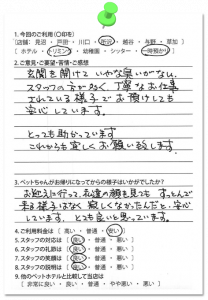 1.今回のご利用(○印を)
[店舗: 見沼 ・ 戸田 ・ 川口 ・ 所沢 ・ 越谷 ・ 与野 ・ 草加 ]
[ ホテル ・ トリミング ・ 幼稚園 ・ シッター ・ 一時預かり ]
2.ご意見・ご要望・苦情・ご感想
玄関を開けて いやな臭いがない。
スタッフの方が多く、丁寧なお仕事
されている様子で お預けしても
安心しています。
とっても助かっています
これからも宜しくお願い致します。
3.ペットちゃんがお帰りになってからの様子はいかがでしたか?
お迎えに行って、私達の顔を見ても
来る様子はなく 寂しくなかったんだと、安心
しています。とても良いと思っています。
4.ご利用料金は [ 高い ・ 普通 ・ 安い ]
5.スタッフの対応は [ 良い ・ 普通 ・ 悪い ]
6.スタッフの礼節は [ 良い ・ 普通 ・ 悪い ]
7.スタッフの笑顔は [ 良い ・ 普通 ・ 悪い ]
8.スタッフの説明は [ 良い ・ 普通 ・ 悪い ]
9.他のペットホテルと比較して当店は
[ 非常に良い ・ 良い ・ 普通 ・ やや悪い ・ 悪い ]